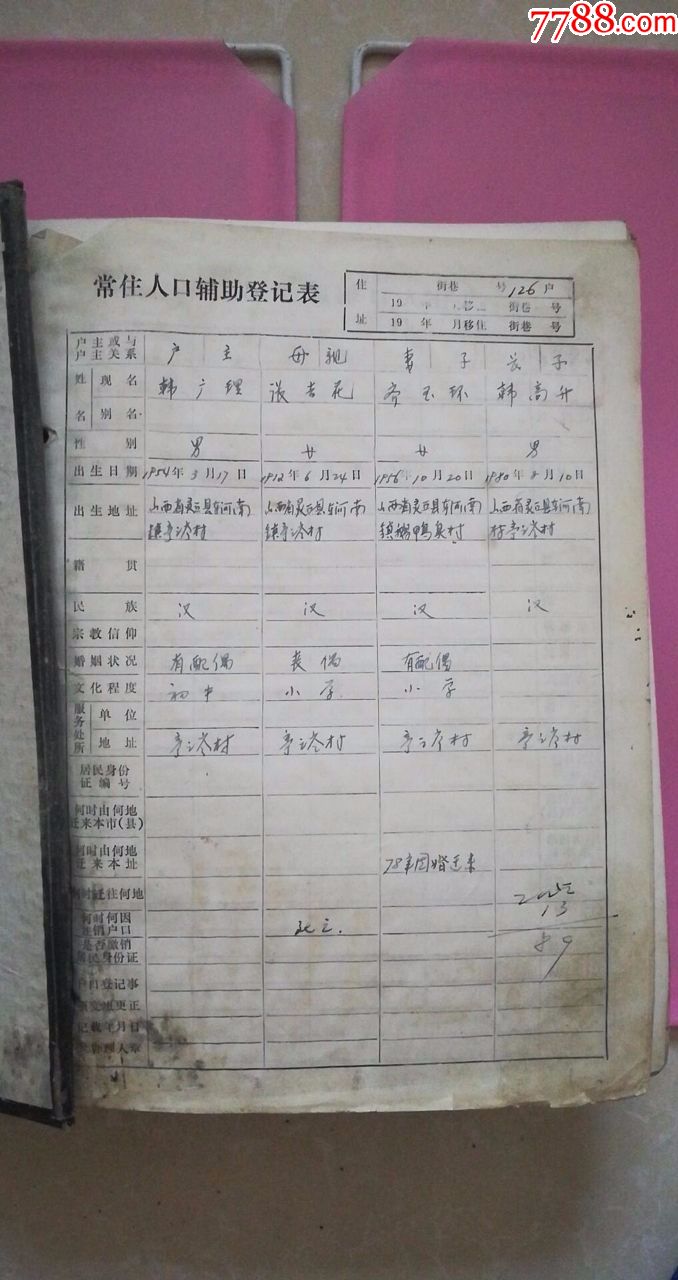 7788.com
常住人口辅助登记表
住 街巷 号 126户
19 年 月移住 街巷 号
址 19 年 月移住 街巷 号
户主或与户主关系 户主 母亲 妻子 长子
姓名 现名 韩广理 张杏花 齐玉环 韩高升
别名
性别 男 女 女 男
出生日期 1954年3月17日 1912年6月24日 1956年10月20日 1980年8月10日
出生地址 山西省灵丘县东河南 山西省灵丘县东河南 山西省灵丘县东河南 山西省灵丘县东河南
镇 村 镇 村 镇 村 村 村
籍贯
民族 汉 汉 汉 汉
宗教信仰
婚姻状况 有配偶 丧偶 有配偶
文化程度 初中 小学 小学
服务处所 单位
地址 村 村 村 村
居民身份
证编号
何时由何地
迁来本市(县)
何时由何地
迁来本址 78年因婚迁来
何时迁往何地
何时何因
注销户口 死亡.
13
是否缴销
居民身份证 89
户口登记事
项变更更正
记载年月日